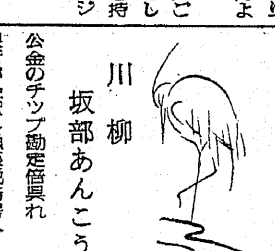 よ
し
持
ジ
川柳
坂部あんこう
公金のチップ勘定倍呉れ